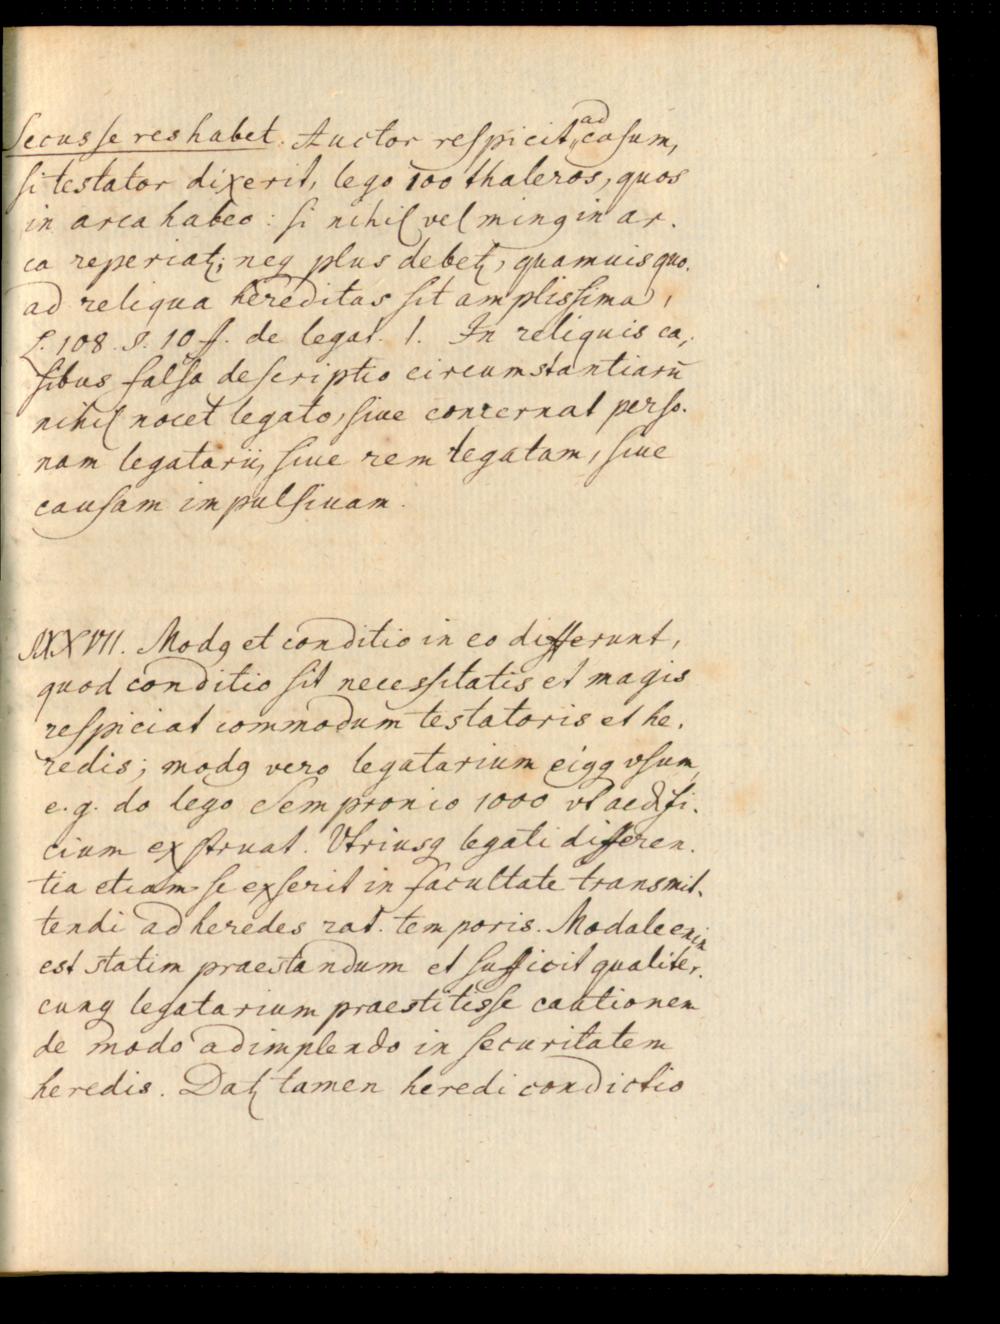 Secus se res habet. Auctor respicit ad casum,
si testator dixerit, lego 100 thaleros, quos
in arca habeo: si nihil vel ming in ar-
ca reperiatꝫ; neq plus debetꝫ, quamuis quo-
ad reliqua hereditas sit amplissima,
L. 108. §. 10 ff. de legat. 1. In reliquis ca-
sibus falsa descriptio circumstantiarū
nihil nocet legato, siue concernat perso-
nam legatarii, siue rem legatam, siue
causam impulsiuam.
§XXVII. Modq et conditio in eo differunt,
quod conditio sit necessitatis et magis
respiciat commodum testatoris et he-
redis; modq vero legatarium eiqq vsum,
e. g. do lego Sempronio 1000 vt aedifi-
cium exstruat. Vtriusq legati differen-
tia etiam se exserit in facultate transmit-
tendi ad heredes rat. temporis. Modale enim
est statim praestandum et sufficit qualiter-
cunq legatarium praestitisse cautionem
de modo adimplendo in securitatem
heredis. Datꝫ tamen heredi condictio